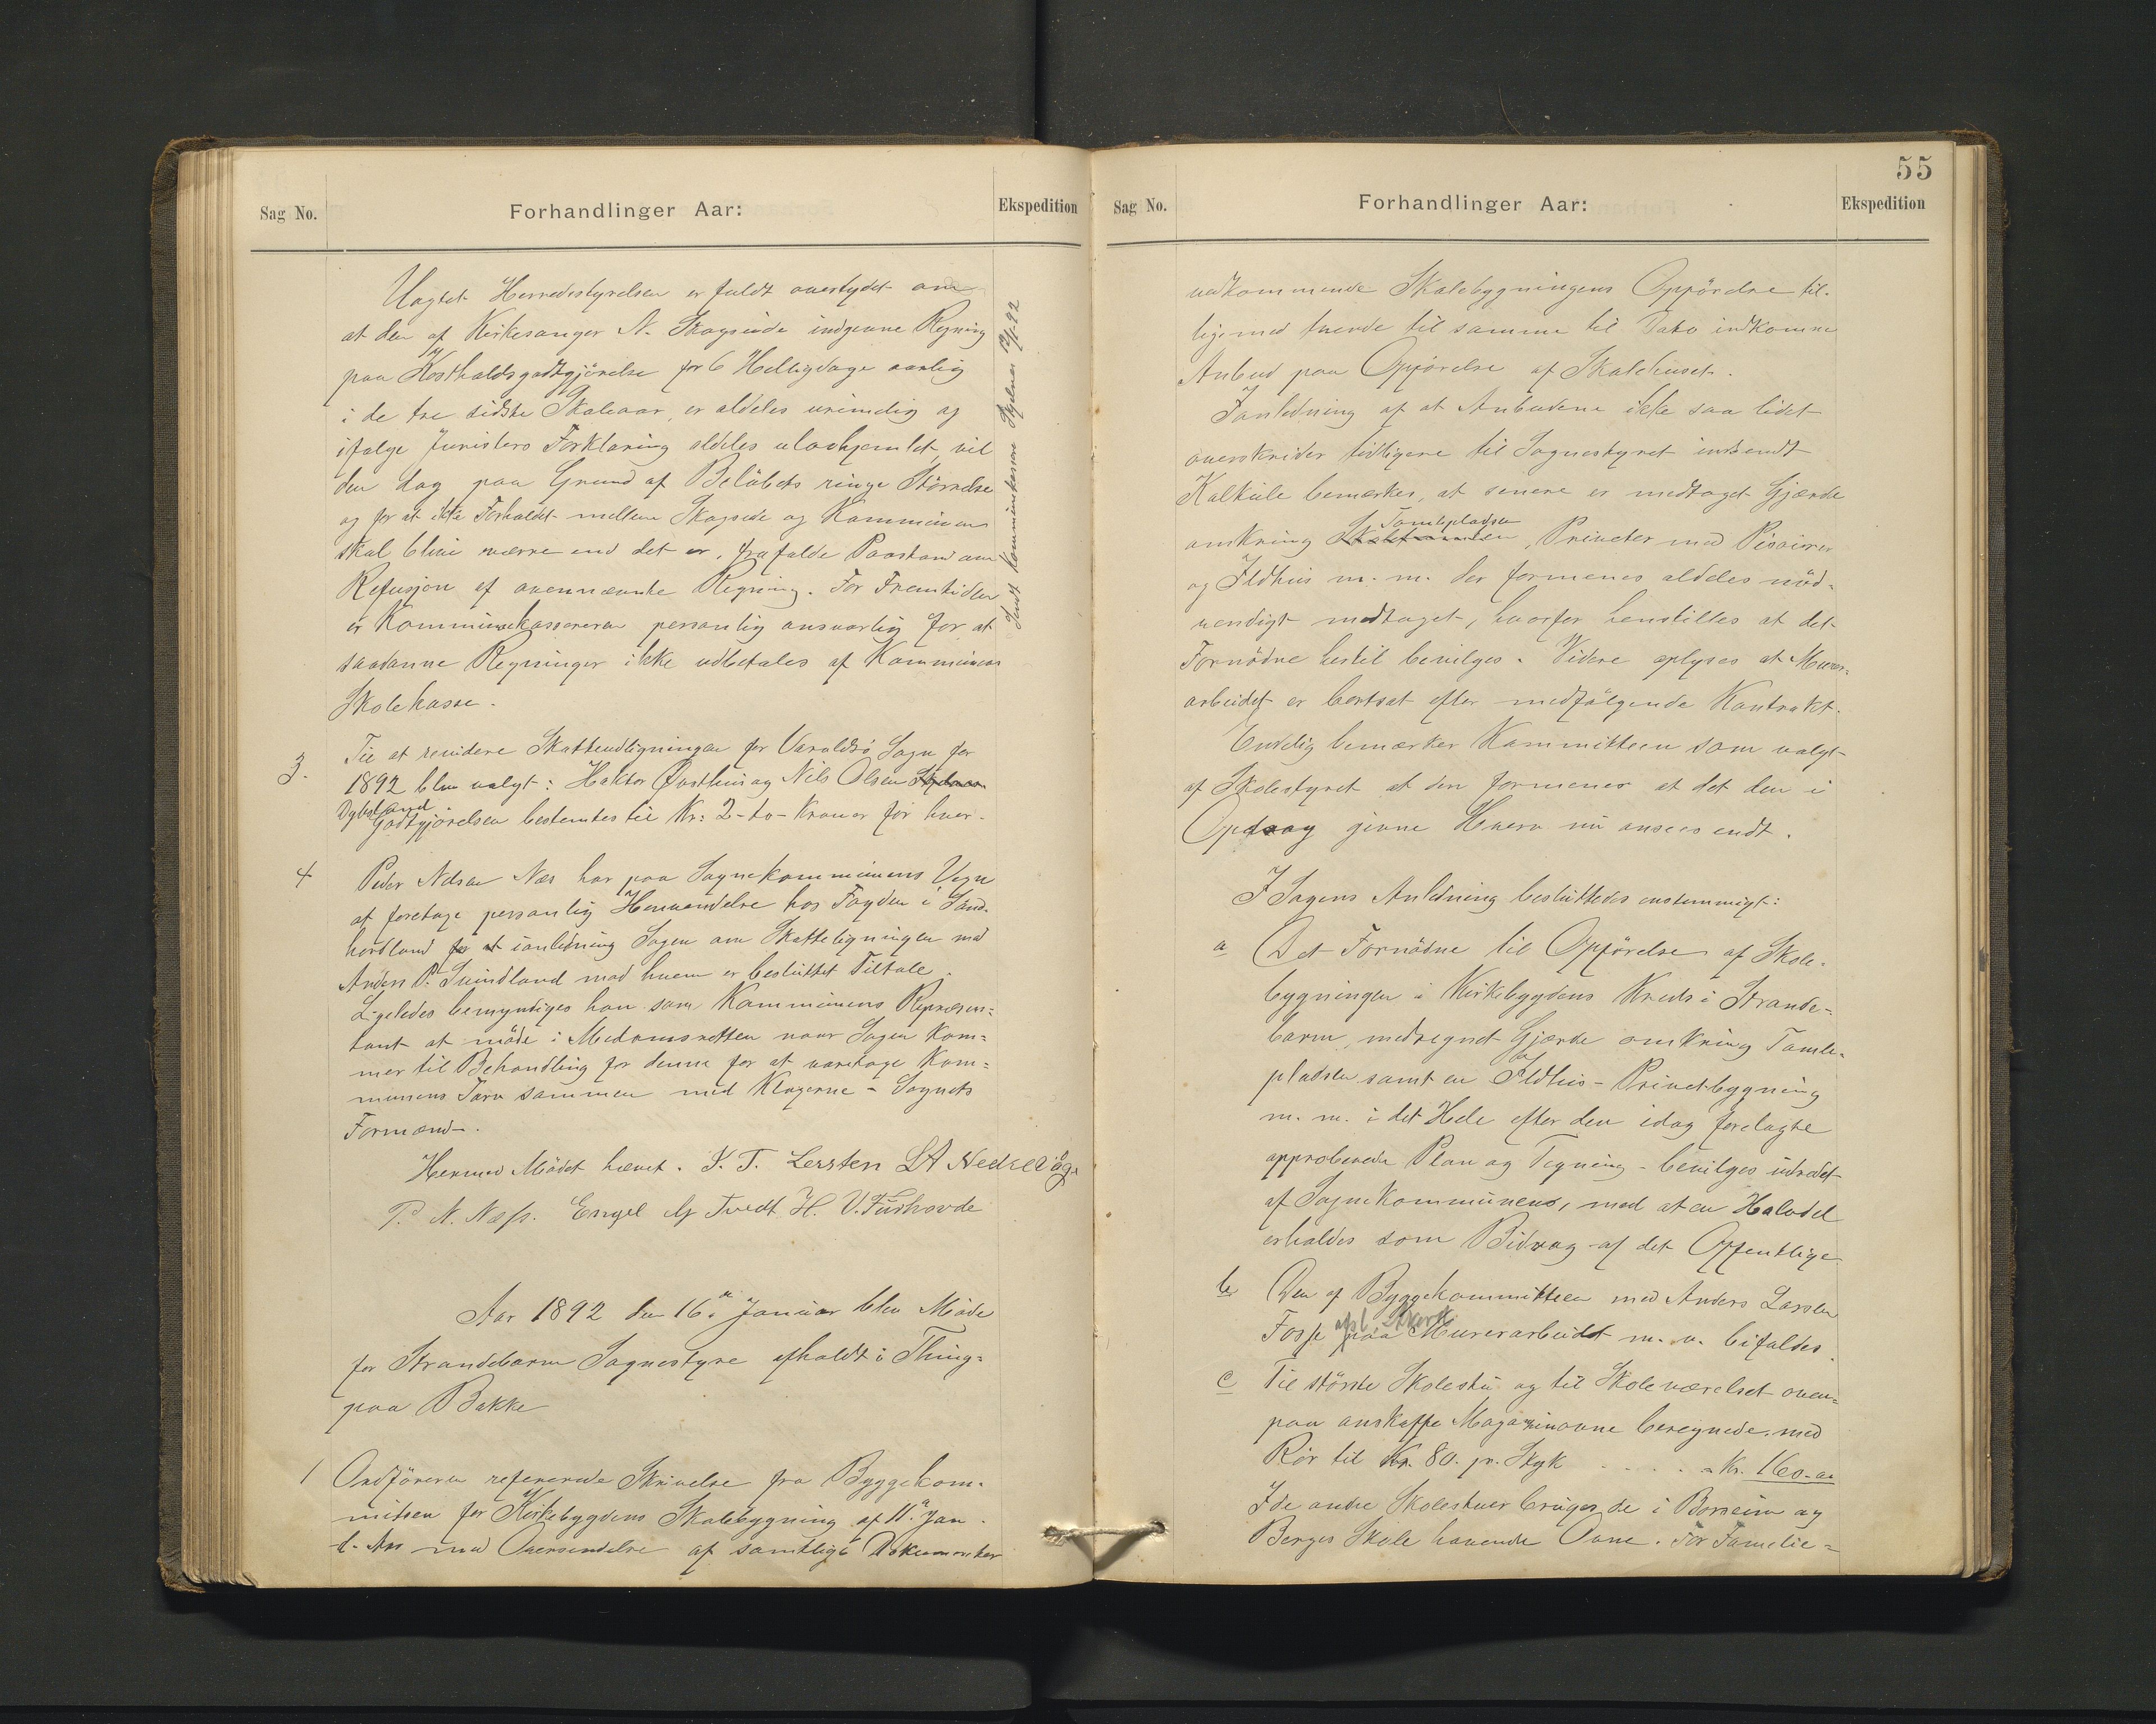 Sag No.
Forhandlinger Aar:
Ekspedition
Uagtet Herredsstyrelsen er fuldt overtydet om
at den af Kirkesanger N. Skogseide indgivne Regning
paa Kostholdsgodtgjörelse for 6 Helligdage aarlig
i de tre sidste Skoleaar, er aldeles urimelig og
ifølge Juristers Forklaring aldeles ulovhjemlet, vil
den dog paa Grund af Belöbets ringe Störrelse
og for at ikke Forholdet mellem Skogseide og Kommunen
skal blive værre end det er, frafalde Paastand om
Refusjon af ovennævnte Regning. For Fremtiden
er Kommunekassereren personlig ansvarlig for at
saadanne Regninger ikke udbetales af Kommunens
Skolekasse.
Sendt Kommunekasserer
3.
Til at revidere Skatteudligningen for Varaldsö Sogn for
1892 blev valgt: Haktor Øvsthus og Nils Olsen
Dybsland.
Godtgjörelsen bestemtes til Kr: 2 - to - Kroner för hver.
4
Peder Nilsen Næs har paa Sognekommunens Vegn
at foretage personlig Henvendelse hos Fogden i Sønd-
hordland for at ianledning Sagen om Skatteligningen med
Anders P. Svindland mod hvem er besluttet Tiltale.
Ligeledes bemyndiges han som Kommunens Repræsen=
tant at möde i Meddomsretten naar Sagen kom=
mer til Behandling for denne for at varetage Kom=
munens Tarv sammen med Klagerne - Sognets
Formænd.
Hermed Mödet hævet. S. T. Lersten
P. N. Næss. Engel Tvedt H. V. Fürhovde
Aar 1892 den 16de Januar blev Möde
for Strandebarm Sognestyre afholdt i Thing=
paa Bakke
1
Ordföreren refererede Skrivelse fra Byggekom-
miteen for Kirkebygdens Skolebygning af 11te Jan.
d. Aar med Oversendelse af samtlige Dokumenter
55
Sag No.
Forhandlinger Aar:
Ekspedition
vedkommende Skolebygningens Opförelse til-
ligemed tvende til samme til Dato indkomne
Anbud paa Opförelse af Skolehuset.
Ianledning af at Anbudene ikke saa lidet
overskrider tidligere til Sognestyret indsendt
Kalküle bemærkes, at senere er medtaget Gjærde
omkring Tomtepladsen, Priveter med Pisoirer
og Ildhus m. m. der formenes aldeles nöd-
vendigt medtaget, hvorfor henstilles at det
Fornödne hertil bevilges. Videre oplyses at Murer-
arbeidet er bortsat efter medfölgende Kontrakt.
Endelig bemærker Kommitteen som valgt
af Skolestyret at den formener at det den i
Opdrag givne Hverv nu ansees endt.
I Sagens Anledning besluttedes enstemmigt:
a
Det Fornödne til Opförelse af Skole-
bygningen i Kirkebygdens Kreds i Strande-
barm, medregnet Gjærde omkring Tomte-
pladsen samt en Ildhus- og Privetbygning
m. m. i det Hele efter den idag forelagte
approberede Plan og Tegning - bevilges udredet
af Sognekommunens, mod at en Halvdel
erholdes som Bidrag af det Offentlige
b
Den af Byggekommitteen med Anders Larsen
Fosse afsl. Akkord paa Murerarbeidet m. v. bifaldes.
c
Til störste Skolestu og til Skoleværelset oven=
paa anskaffe Magazinovne beregnede med
Rör til Kr. 80. pr. Styk - - - - = Kr. 160.00
I de andre Skolestuer bruges de i Borseim og
Berges Skole havende Ovne. For Familie=